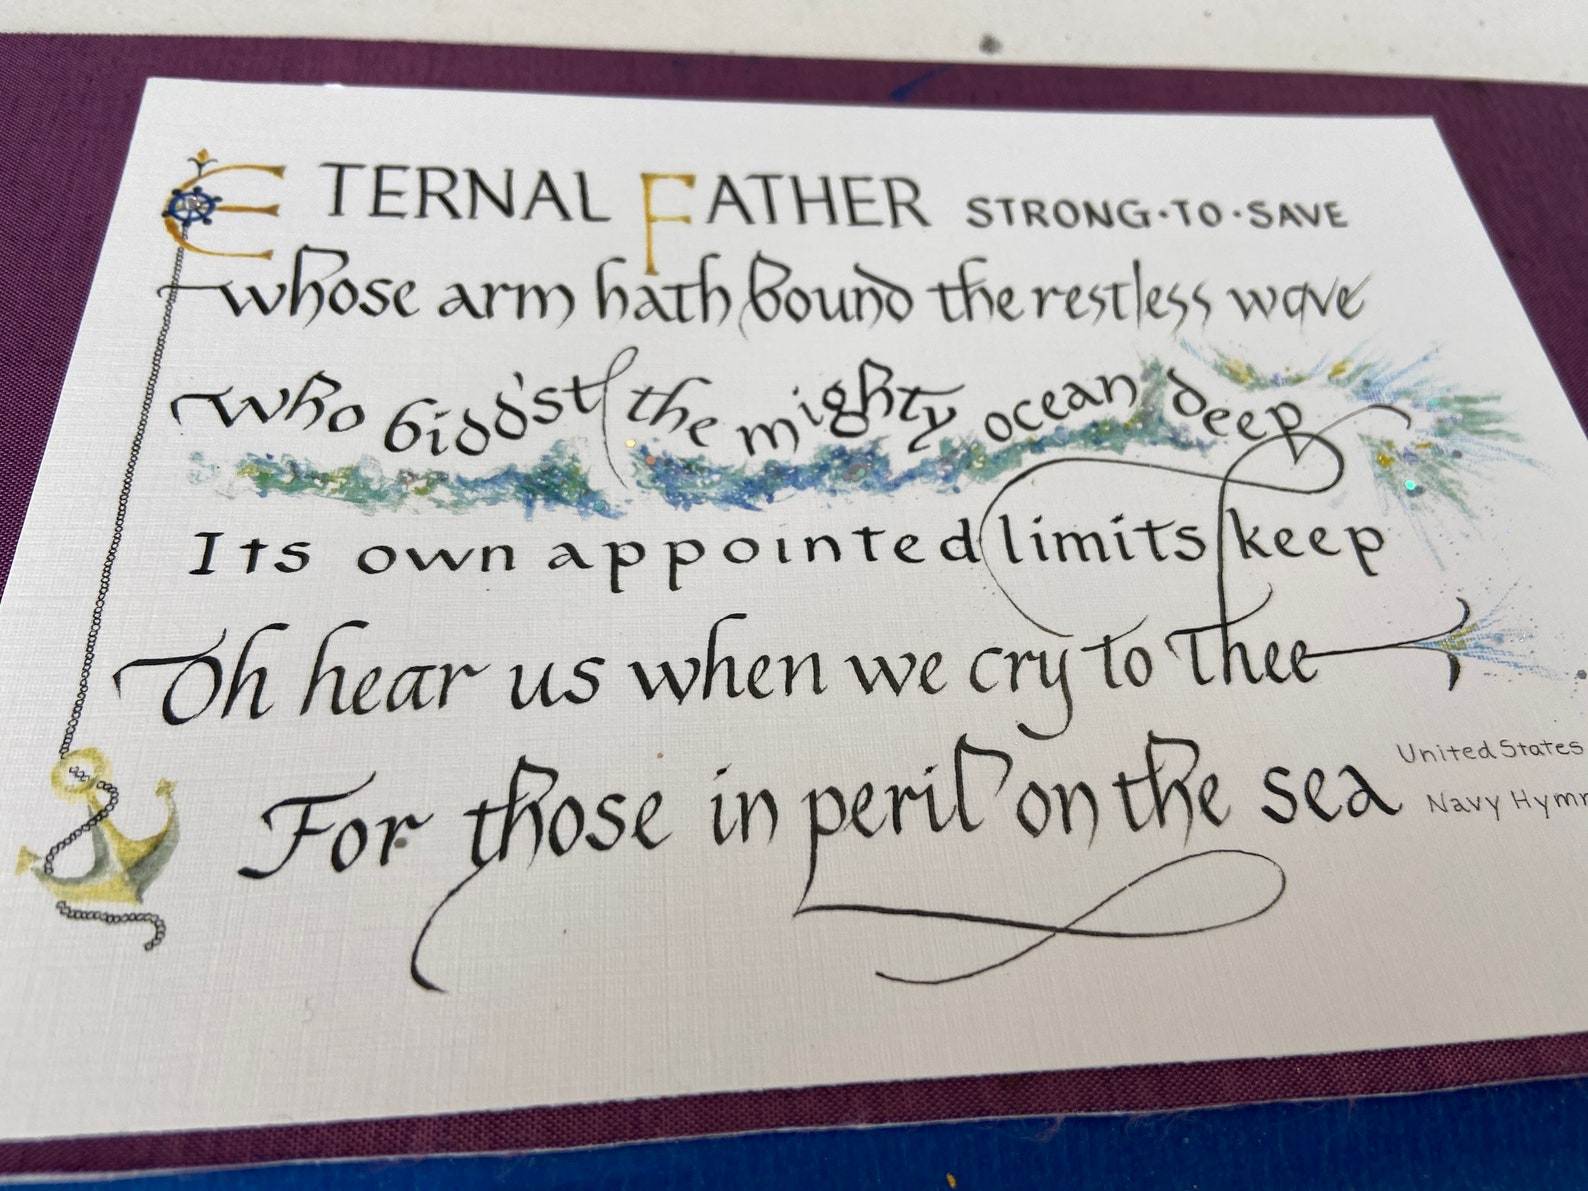 ETERNAL FATHER STRONG·TO·SAVE
whose arm hath bound the restless wave
Who bidd'st the mighty ocean deep
Its own appointed limits keep
Oh hear us when we cry to Thee
For those in peril on the sea
United States
Navy Hymn